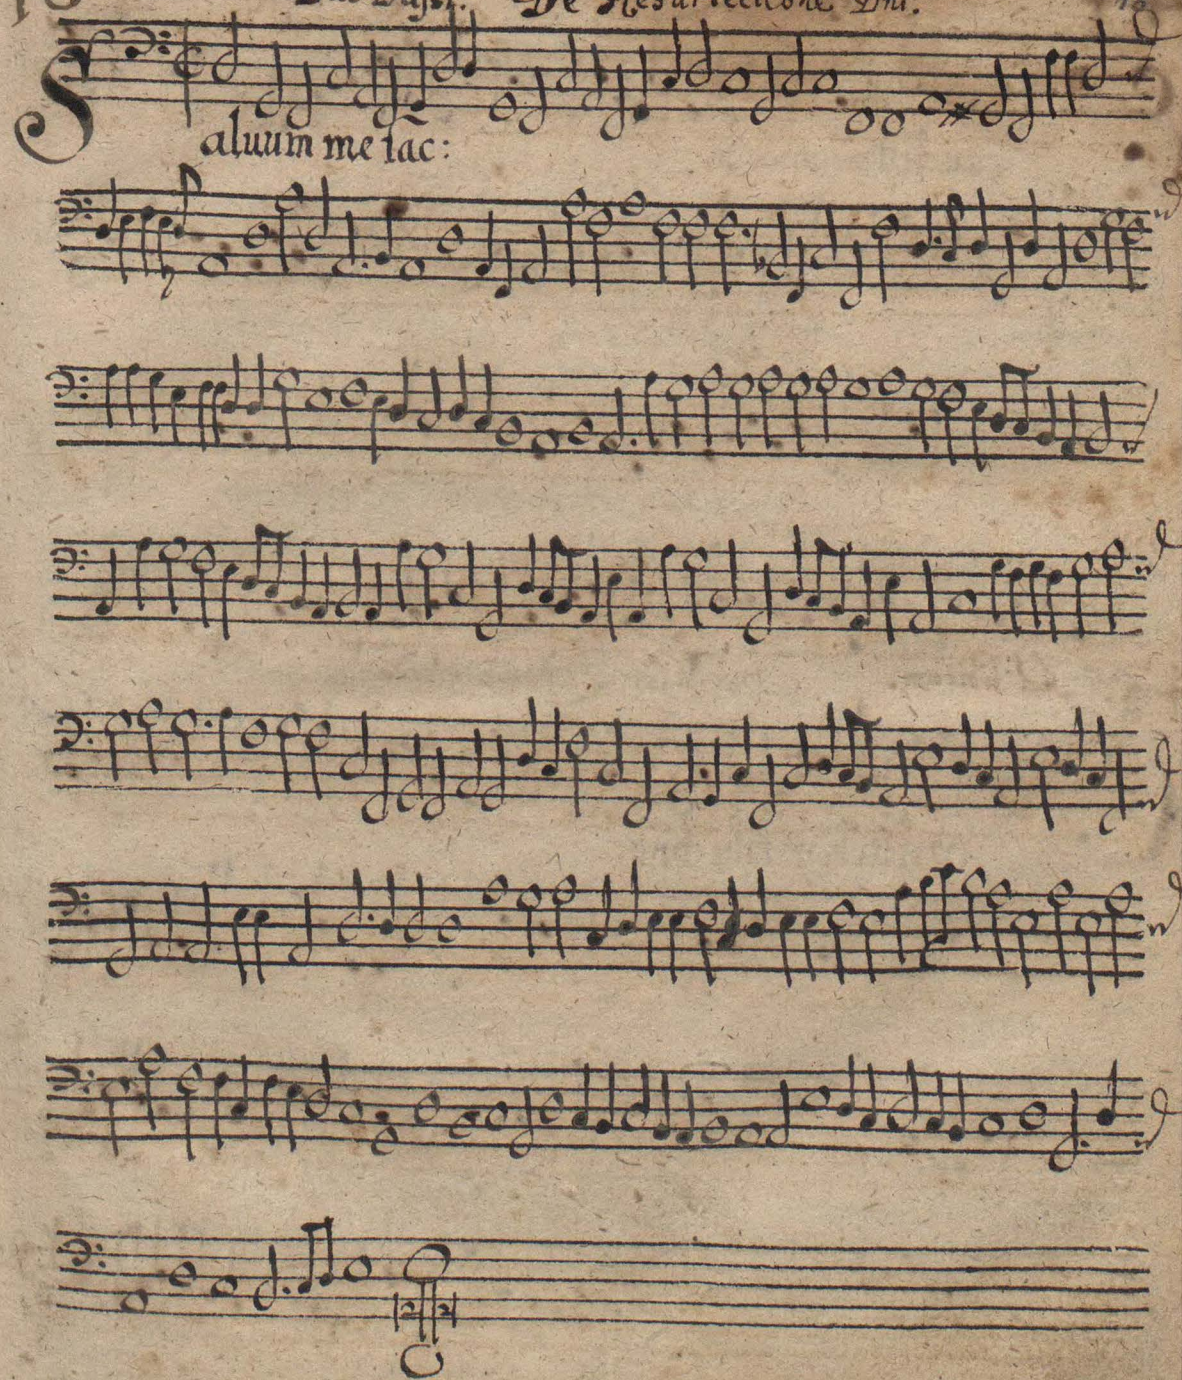 De Resurrectione Dni.
Saluum me fac: